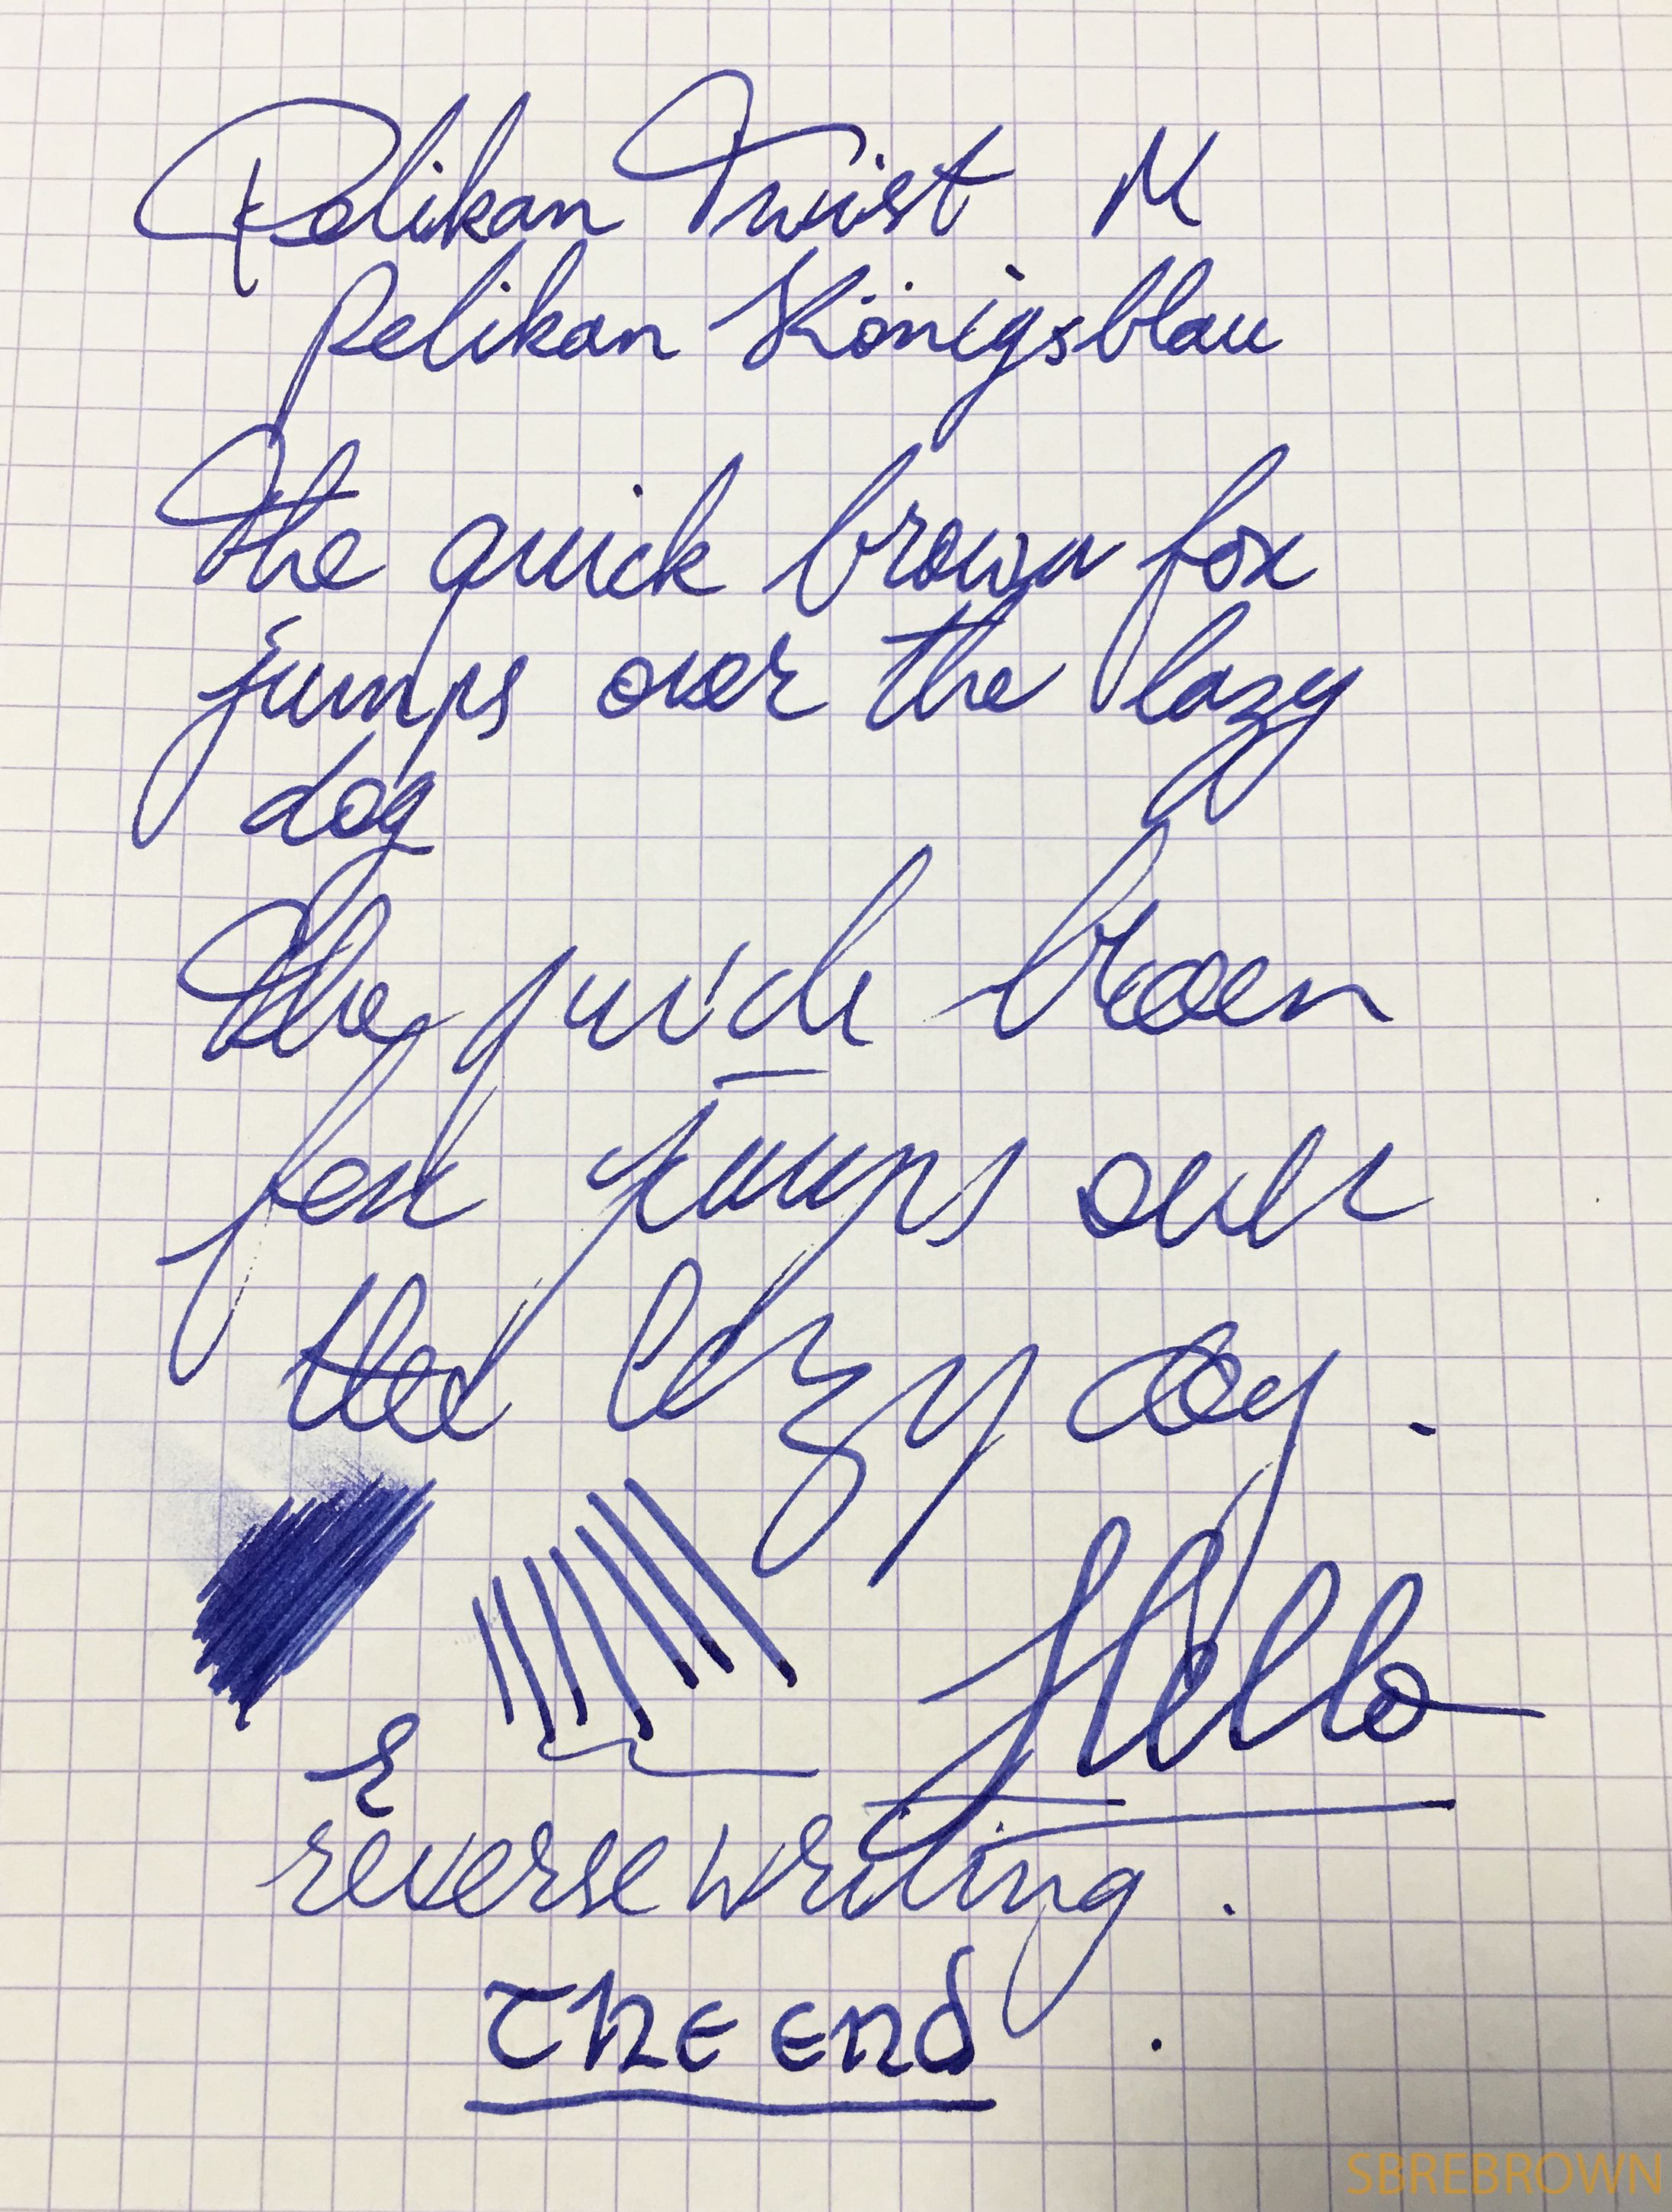 Pelikan Twist M
Pelikan Königsblau
The quick brown fox
jumps over the lazy
dog
The quick brown
fox jumps over
the lazy dog.
Hello
reverse writing.
The end
SBREBROWN